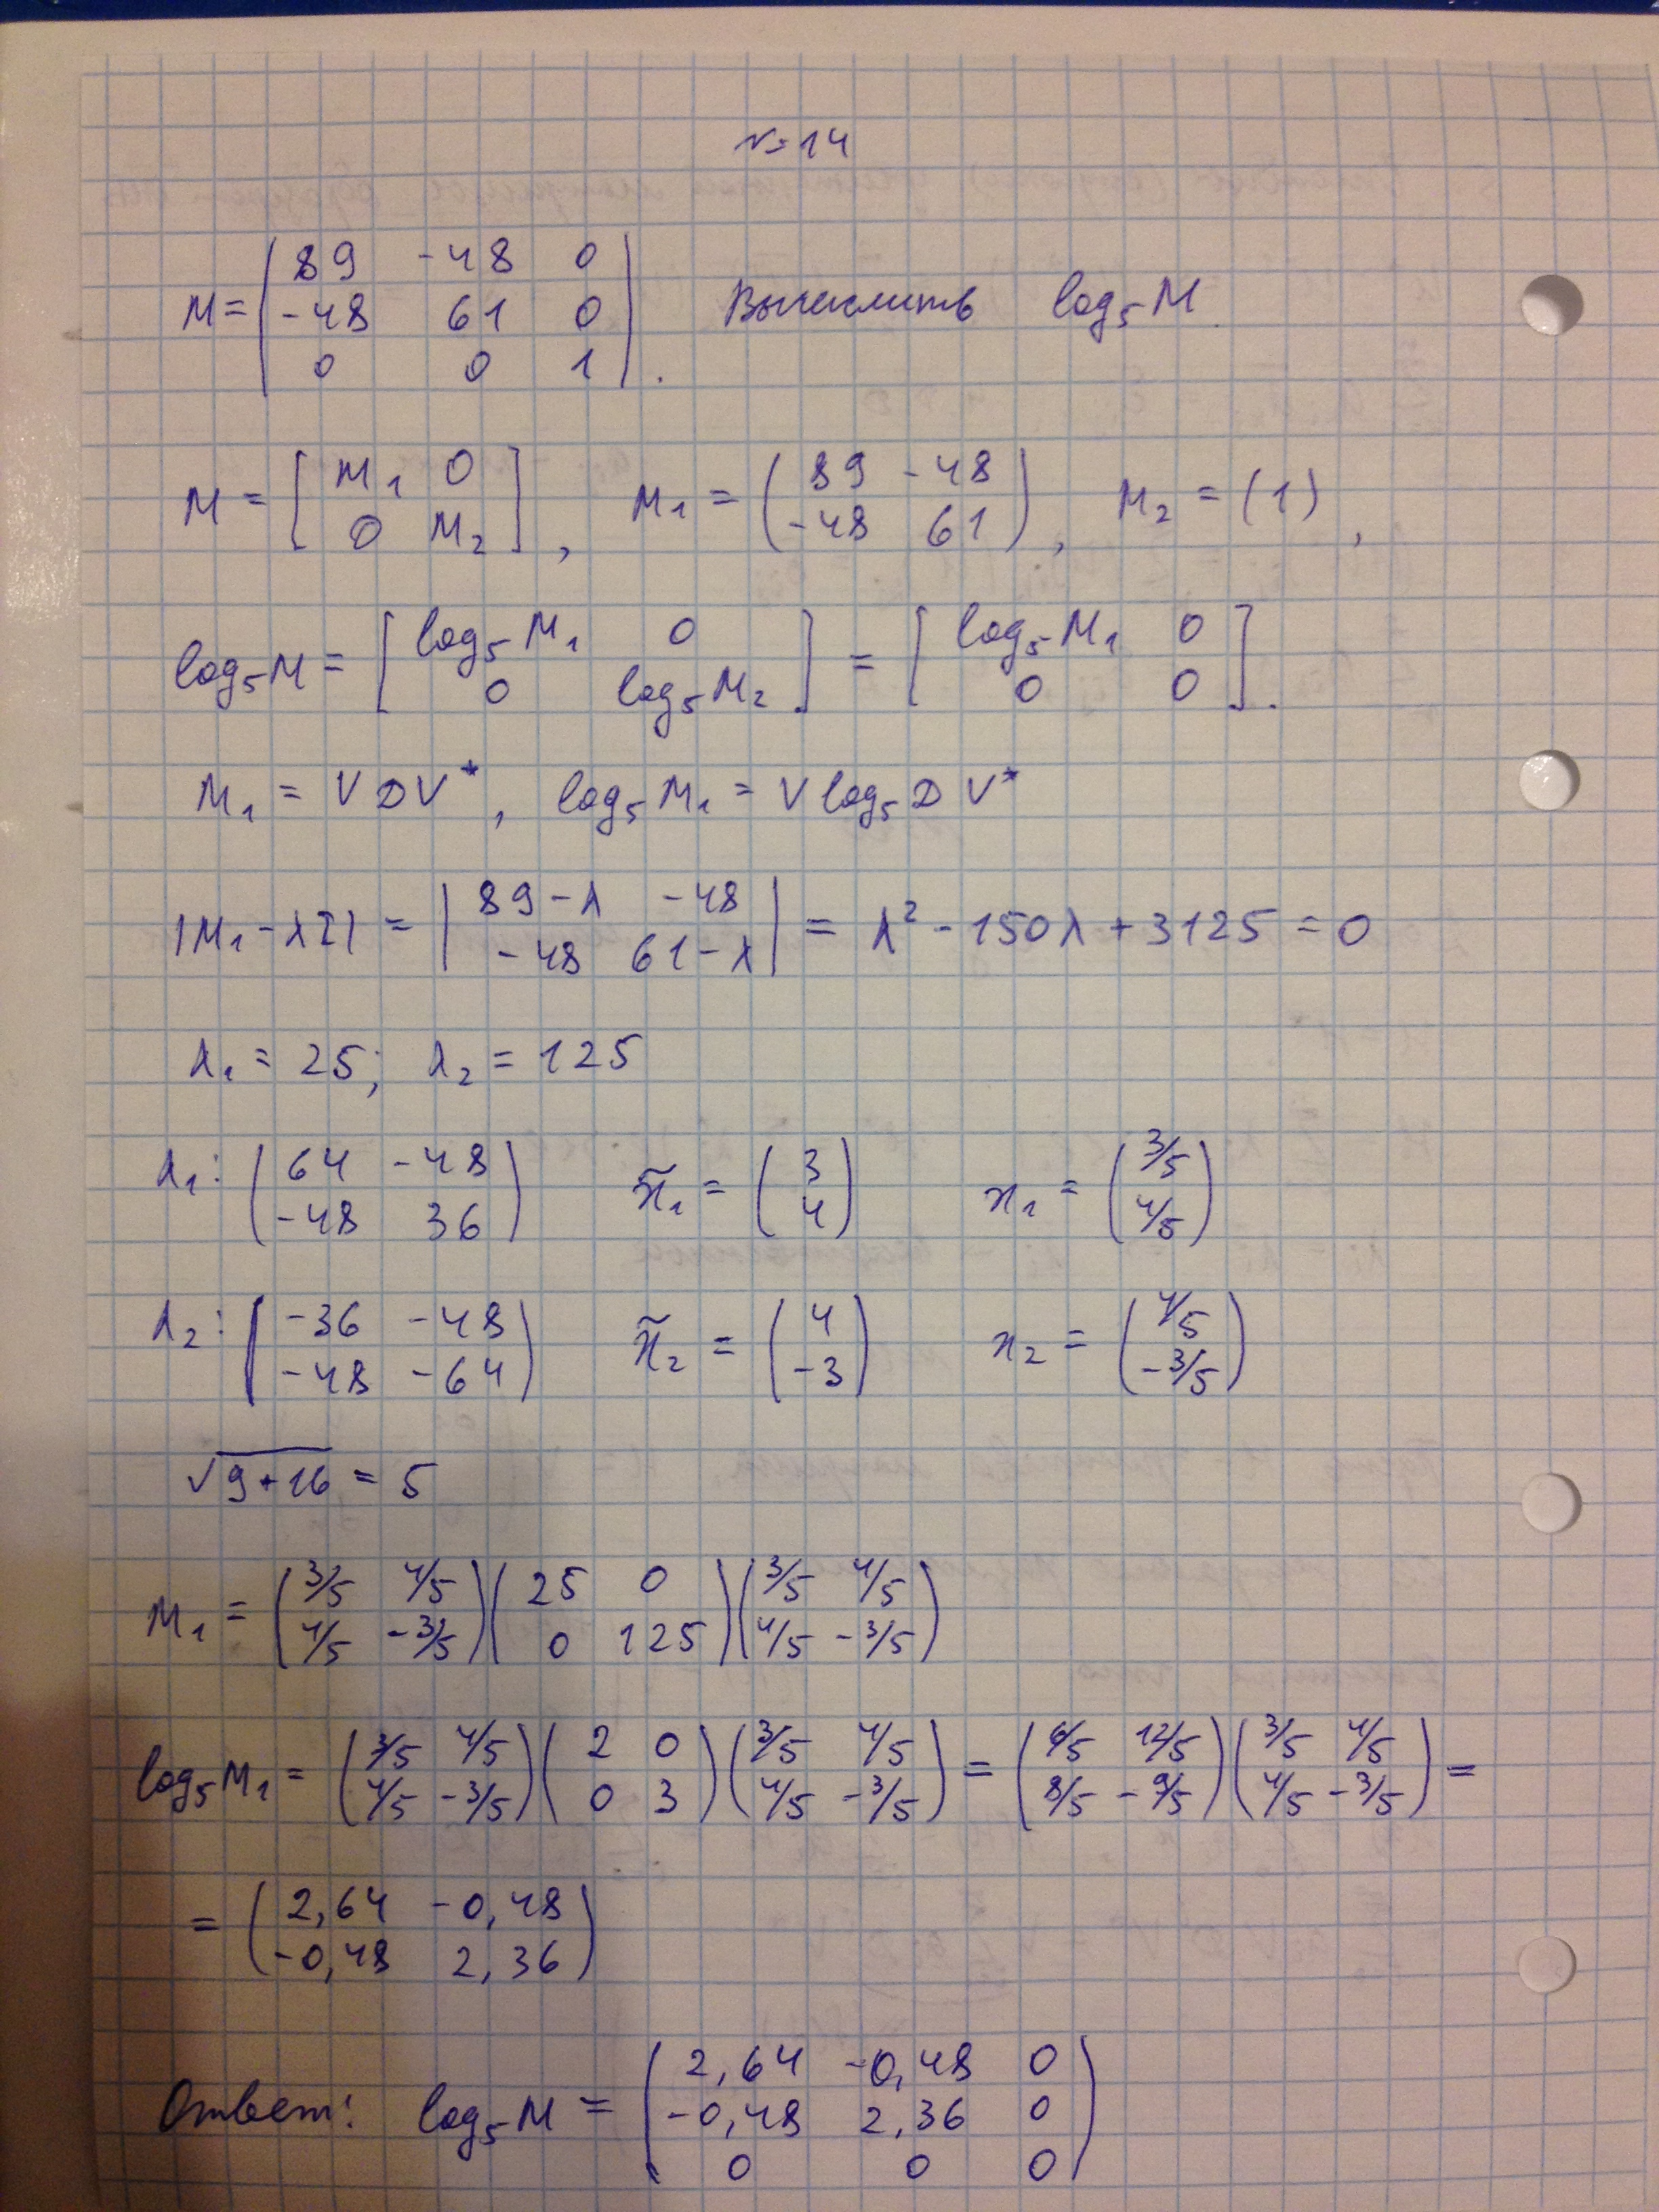 №14
M = | 89 -48 0 |
| -48 61 0 | Вычислить log₅M.
| 0 0 1 | .
M = [ M₁ 0 ; 0 M₂ ], M₁ = ( 89 -48 ; -48 61 ), M₂ = (1),
log₅M = [ log₅M₁ 0 ; 0 log₅M₂ ] = [ log₅M₁ 0 ; 0 0 ].
M₁ = VDV*, log₅M₁ = V log₅D V*
|M₁-λI| = | 89-λ -48 ; -48 61-λ | = λ² - 150λ + 3125 = 0
λ₁ = 25; λ₂ = 125
λ₁: ( 64 -48 ; -48 36 ) x̃₁ = ( 3 ; 4 ) x₁ = ( 3/5 ; 4/5 )
λ₂: ( -36 -48 ; -48 -64 ) x̃₂ = ( 4 ; -3 ) x₂ = ( 4/5 ; -3/5 )
√9+16 = 5
M₁ = ( 3/5 4/5 ; 4/5 -3/5 )( 25 0 ; 0 125 )( 3/5 4/5 ; 4/5 -3/5 )
log₅M₁ = ( 3/5 4/5 ; 4/5 -3/5 )( 2 0 ; 0 3 )( 3/5 4/5 ; 4/5 -3/5 ) = ( 6/5 12/5 ; 8/5 -9/5 )( 3/5 4/5 ; 4/5 -3/5 ) =
= ( 2,64 -0,48 ; -0,48 2,36 )
Ответ: log₅M = ( 2,64 -0,48 0 ; -0,48 2,36 0 ; 0 0 0 )